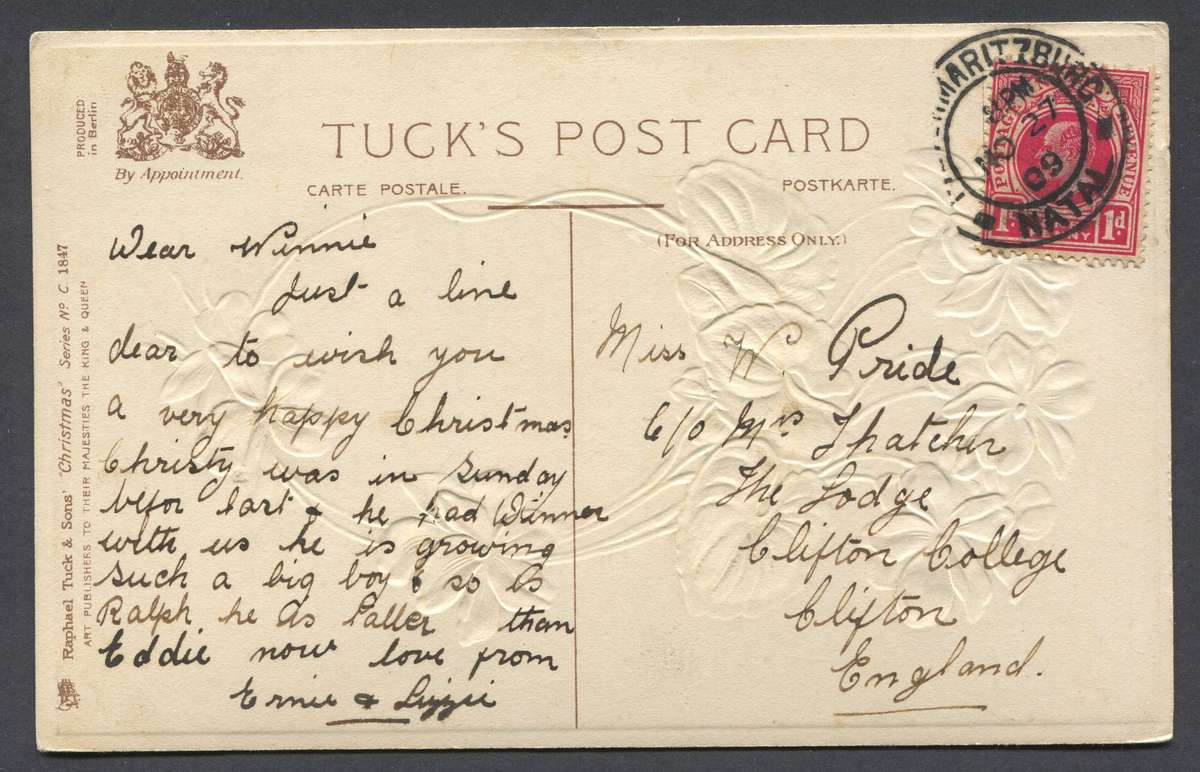 PRODUCED
in Berlin
By Appointment.
TUCK'S POST CARD
CARTE POSTALE.
POSTKARTE.
(FOR ADDRESS ONLY.)
MARITZBURG
PM
27
09
NATAL
POSTAGE REVENUE
1d 1d
Raphael Tuck & Sons' "Christmas" Series No C 1847
ART PUBLISHERS TO THEIR MAJESTIES THE KING & QUEEN
Dear Winnie
Just a line
dear to wish you
a very happy Christmas
Christy was in Sunday
befor last & he had Dinner
with us he is growing
such a big boy & so is
Ralph he as taller than
Eddie now love from
Ernie & Lizzie
Miss W. Pride
C/o Mrs Thatcher
The Lodge
Clifton College
Clifton
England.